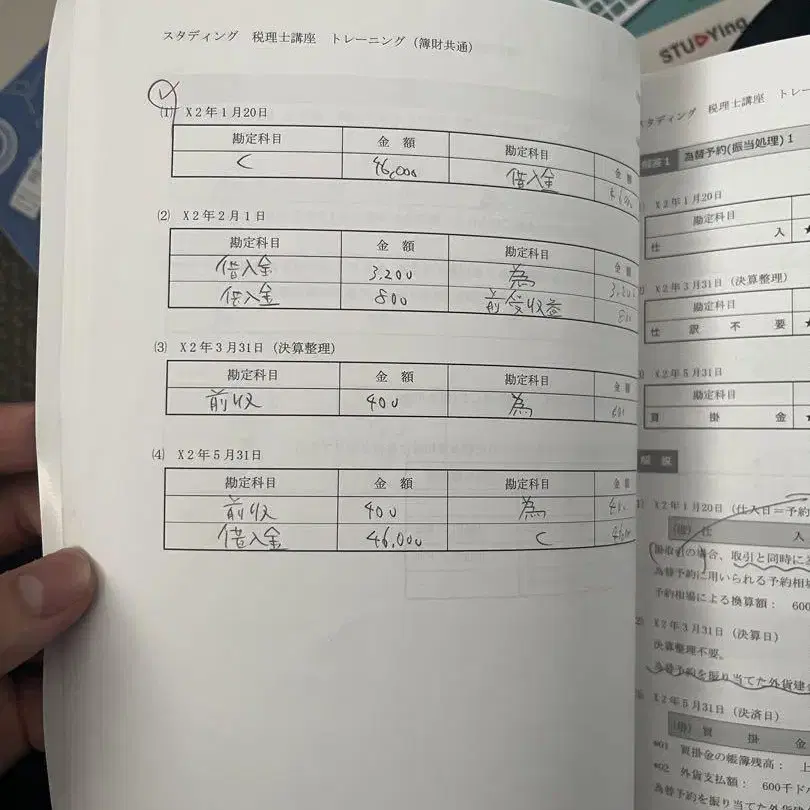 スタディング 税理士講座 トレーニング(簿財共通)
(1) X2年1月20日
勘定科目 金額 勘定科目 金額
C 46,000 借入金
(2) X2年2月1日
勘定科目 金額 勘定科目 金額
借入金 3,200 為 3,200
借入金 800 前受収益 800
(3) X2年3月31日(決算整理)
勘定科目 金額 勘定科目 金額
前収 400 為
(4) X2年5月31日
勘定科目 金額 勘定科目 金額
前収 400 為
借入金 46,000 C
STUDYing
スタディング 税理士講座 トレー
解答1 為替予約(振当処理)1
X2年1月20日
勘定科目
仕入
X2年3月31日(決算整理)
勘定科目
仕訳不要
X2年5月31日
勘定科目
買掛金
解説
X2年1月20日(仕入日=予約
(借)仕入
掛取引の場合、取引と同時に
為替予約に用いられる予約相場
予約相場による換算額: 600
X2年3月31日(決算日)
決算整理不要。
為替予約を振り当てた外貨建
X2年5月31日(決済日)
(借)買掛金
*01 買掛金の帳簿残高: 上
*02 外貨支払額: 600千ド
為替予約を振り当てた外貨建